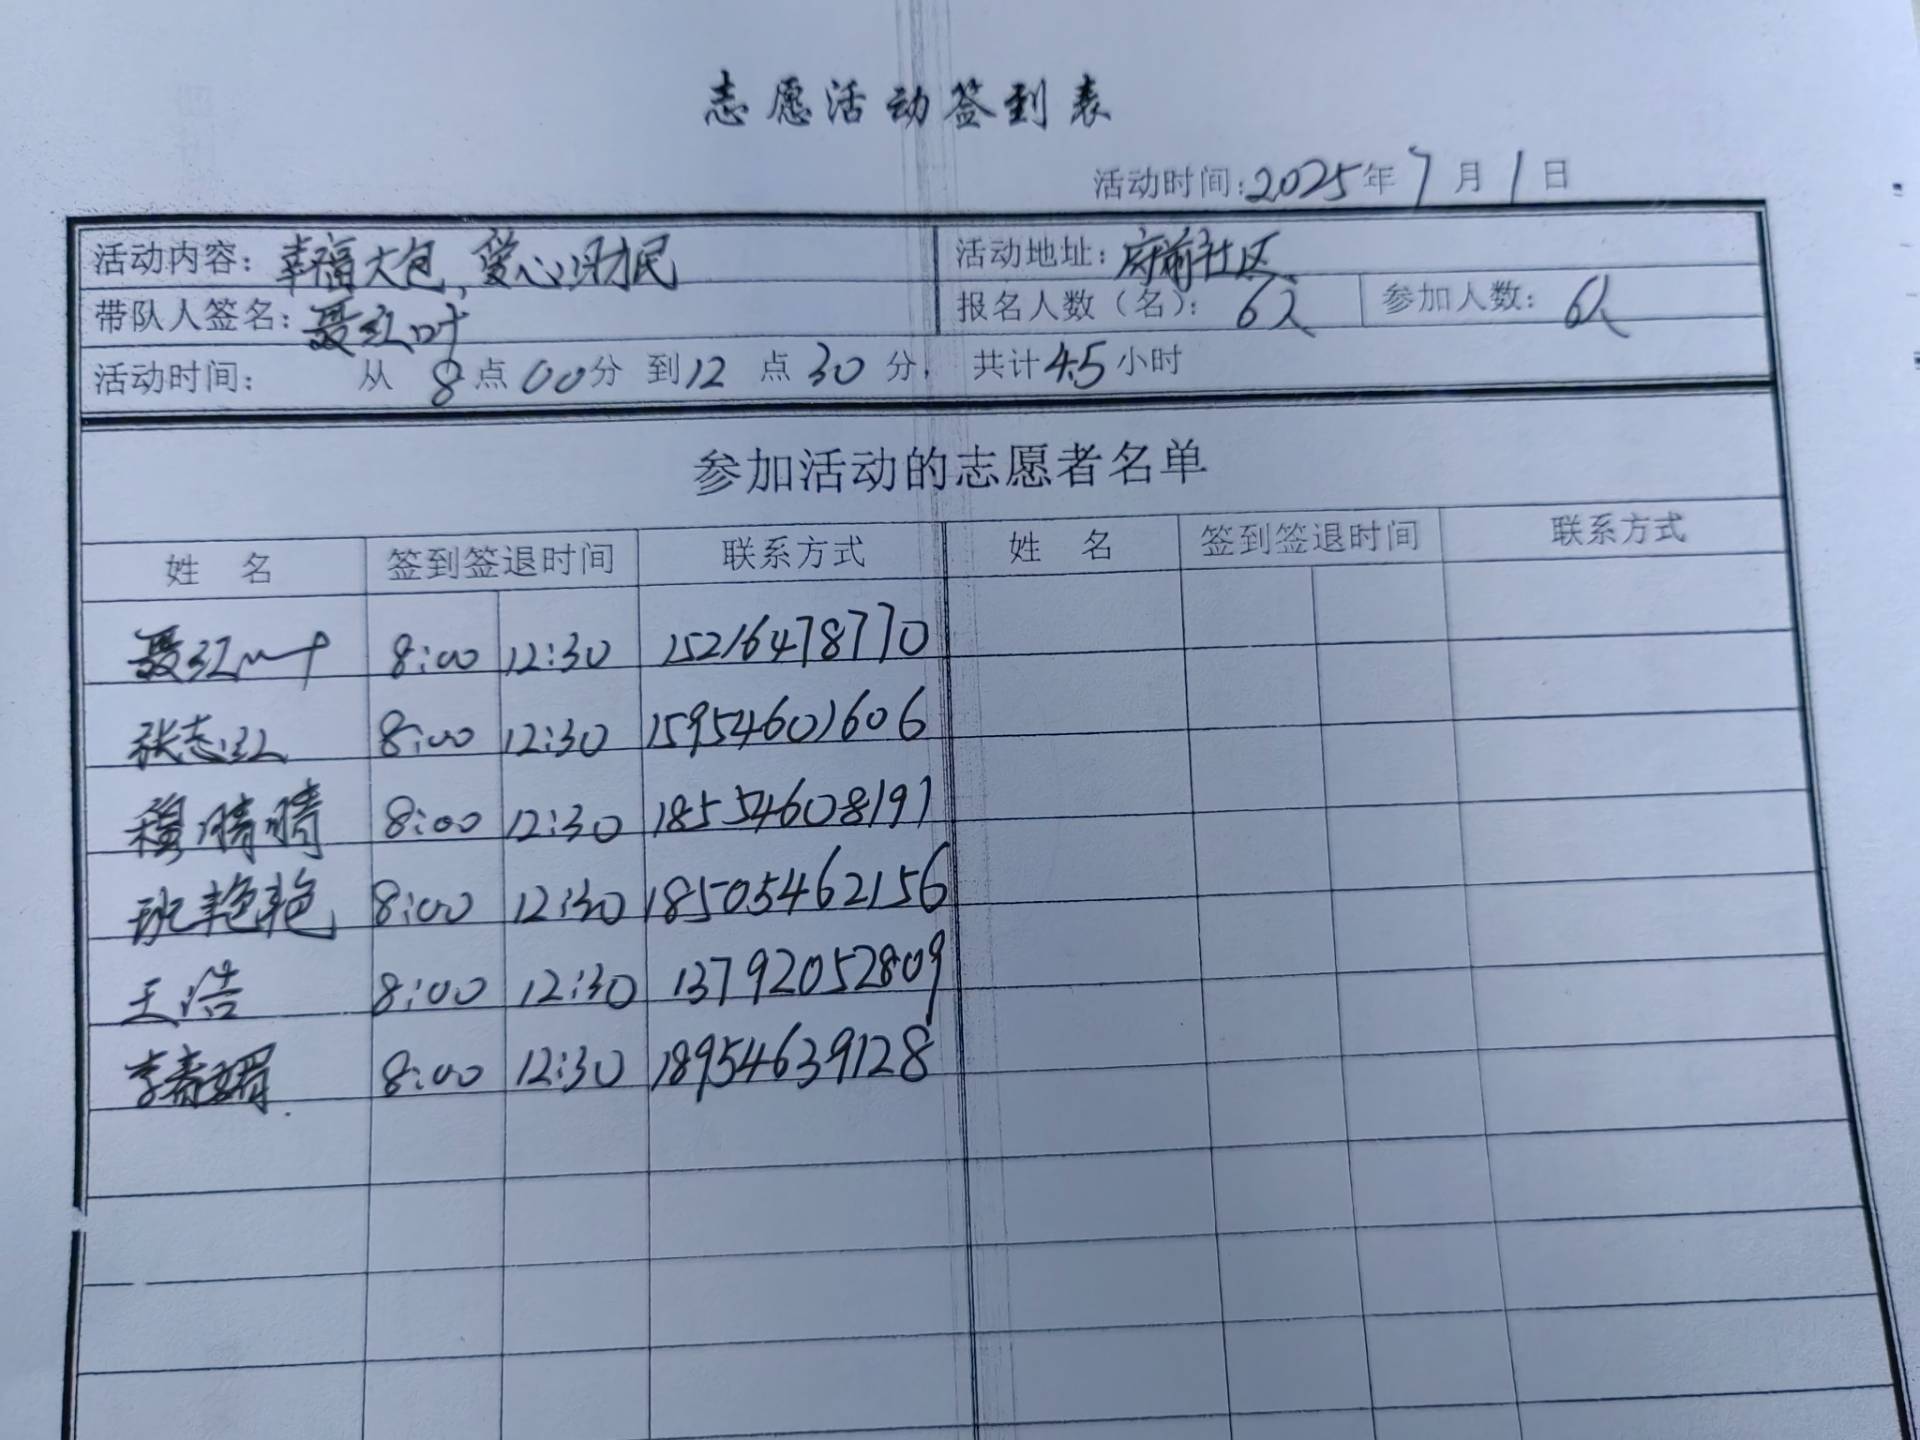 志愿活动签到表
活动时间:2025年7月1日
活动内容：幸福大包,爱心 民 活动地址：府前社区
带队人签名：聂红叶 报名人数（名）：6人 参加人数：6人
活动时间： 从 8点00分 到12 点30 分， 共计4.5小时
参加活动的志愿者名单
姓 名 签到签退时间 联系方式 姓 名 签到签退时间 联系方式
聂红叶 8:00 12:30 15216478770
张志红 8:00 12:30 15954601606
穆晴晴 8:00 12:30 18554608197
班艳艳 8:00 12:30 18505462156
王浩 8:00 12:30 13792052809
李春媚 8:00 12:30 18954639128